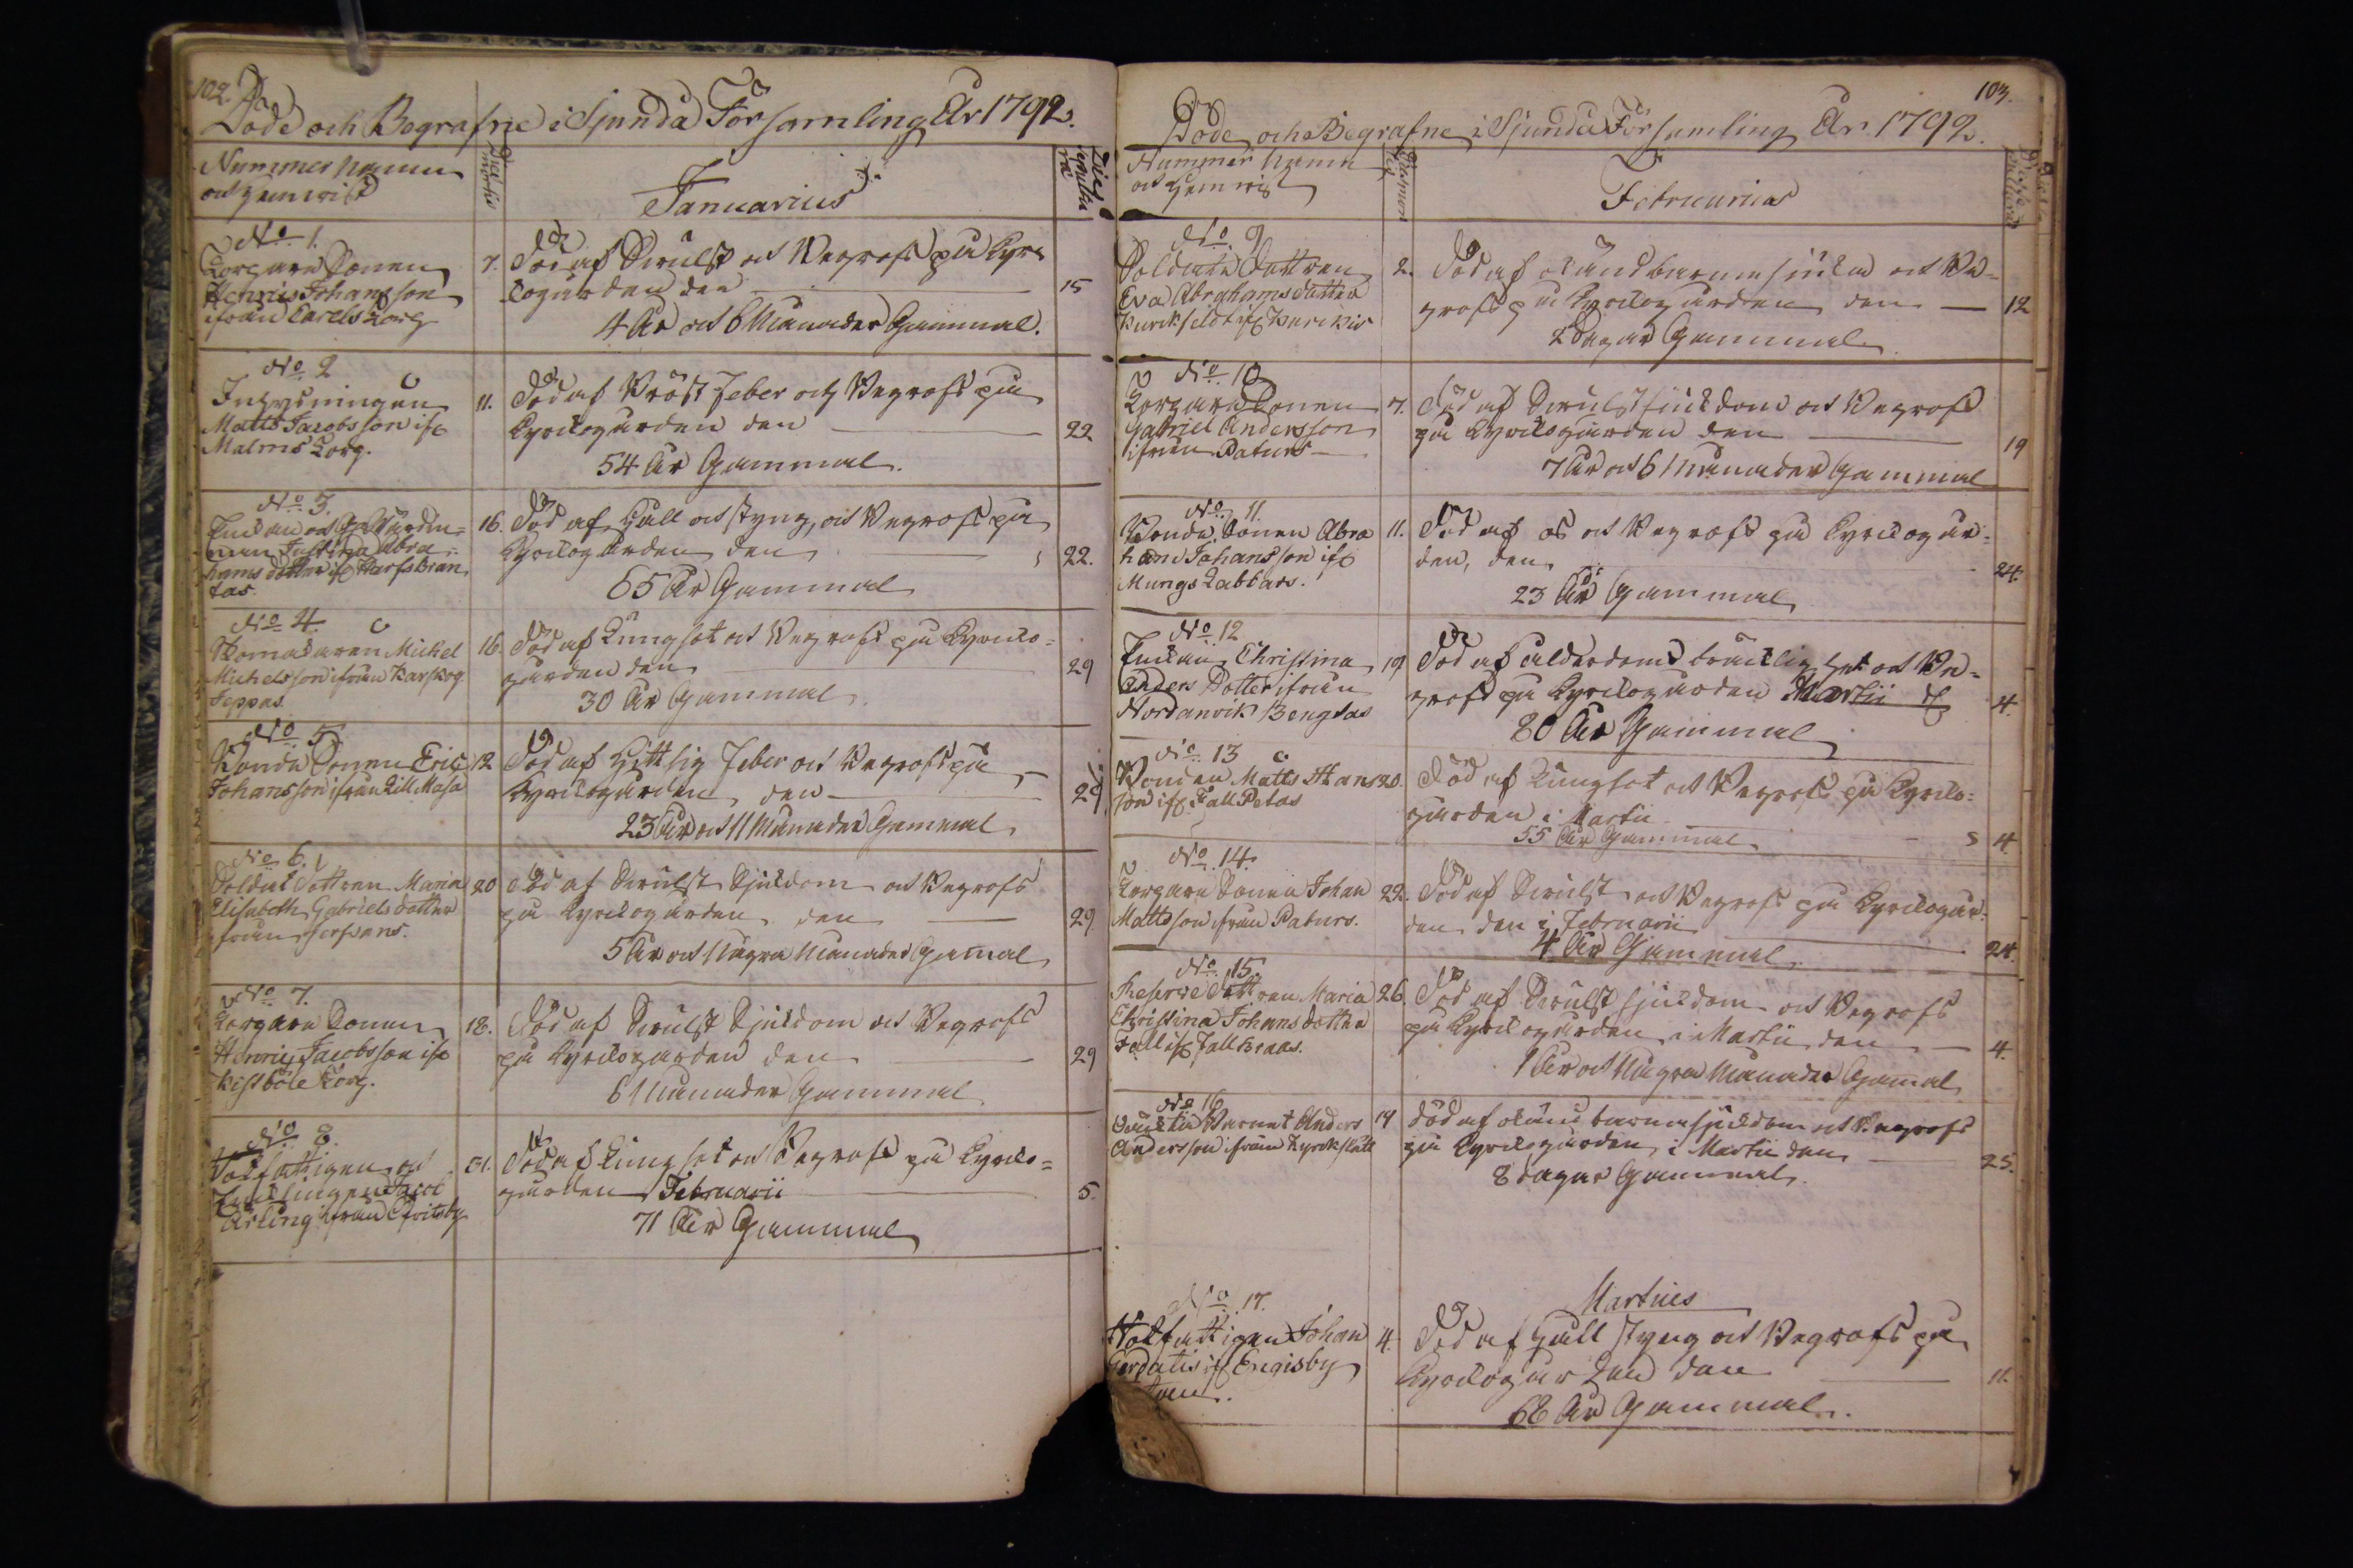 102
Döde och Begrafne i Sjundå Församling År 1792.
Nummer Namn
och hemvist
Dies mortis
Januarius
Dies sepultu
ræ
No 1.
Torpare Sonen
Henric Johansson
ifrån Carels Torp
7.
Död af Swulst och Begrofs på Kyr
kogården den
15
4 År och 6 Månader Gammal.
No 2
Inhysningen
Matts Jacobsson ifr
Malms Torp.
11.
Död af Bröst feber och Begrofs på
Kyrkogården den
22
54 År Gammal.
No 3.
Enkan och
Justina Abra-
hams dotter ifr
tas.
16.
Död af Håll och styng, och Begrofs på
Kyrkogården den
22.
65 År Gammal
No 4.
Skomakaren Michel
Michelsson ifrån Karskog
Jeppas.
16.
Död af Lungsot och Begrofs på Kyrko-
gården den
29
30 År Gammal.
No 5
Bonde Sonen Eric
Johansson ifrån Lill Masa
12
Död af Hittsig feber och Begrofs på
Kyrkogården, den
29
23 År och 11 Månader Gammal.
No 6.
Soldat Dottren Maria
Elisabeth Gabriels dotter
ifrån
20
Död af Swulst Sjukdom och Begrofs
på Kyrkogården den
29.
5 År och Några Månader Gamal
No 7.
Torpare Sonen
Henric Jacobsson ifr
Kistböle Torp.
18.
Död af Swulst Sjukdom och Begrofs
på Kyrkogården den
29
6 Månader Gammal
No 8.
Fattigen och
Jacob
ifrån
31.
Död af Lungsot och Begrofs på Kyrko-
gården Februarii
5.
71 År Gammal
103.
Döde och Begrafne i Sjundå Församling År 1792.
Nummer Namn
och Hemvist
Februarius
No 9
Soldate Dottren
Eva Abrahams dotter
Kurckfeldt ifr Kurckis
2.
Död af okänd barnasjuka och Be-
grofs på Kyrkogården den
12
2 Dagar Gammal
No 10
Torpare Sonen
Gabriel Andersson
ifrån Paturs
7.
Död af Swulst sjukdom och Begrofs
på Kyrkogården den
19
7 År och 6 Månader Gammal
No 11
Bonde Sonen Abra
ham Johansson ifr
Mungs Labbars.
11.
Död af os och Begrofs på Kyrkogår-
den, den
24.
23 År Gammal
No 12
Enkan Christina
Anders Dotter ifrån
Nordanvik Bengtas
19
Död af ålderdoms bräcklighet och Be-
grofs på Kyrkogården Martii d
4.
80 År Gammal
No 13
Bonden Matts Hans
son ifr. Fall Petas
20.
Död af Lungsot och Begrofs på Kyrko-
gården i Martii
4.
55 År Gammal
No 14.
Torpare Sonen Johan
Mattsson ifrån Paturs.
22.
Död af Swulst och Begrofs på Kyrkogår-
den den i Februarii
24.
4 År Gammal
No 15.
Reserve Dottren Maria
Christina Johans dotter
Fall ifr Fall Knaas.
26.
Död af Swulst sjukdom och Begrofs
på Kyrkogården i Martii den
4.
1 År och Några Månader Gamal
No 16
Oäkta Barnet Anders
Andersson ifrån Kyrckslätt
14
Död af okänd barnasjukdom och Begrofs
på Kyrkogården i Martii den
25.
8 dagar Gammal.
Martius
No 17.
Rotfattigen Johan
ifr Engisby
4.
Död af Håll styng och Begrofs på
Kyrkogården den
11.
68 År Gammal.